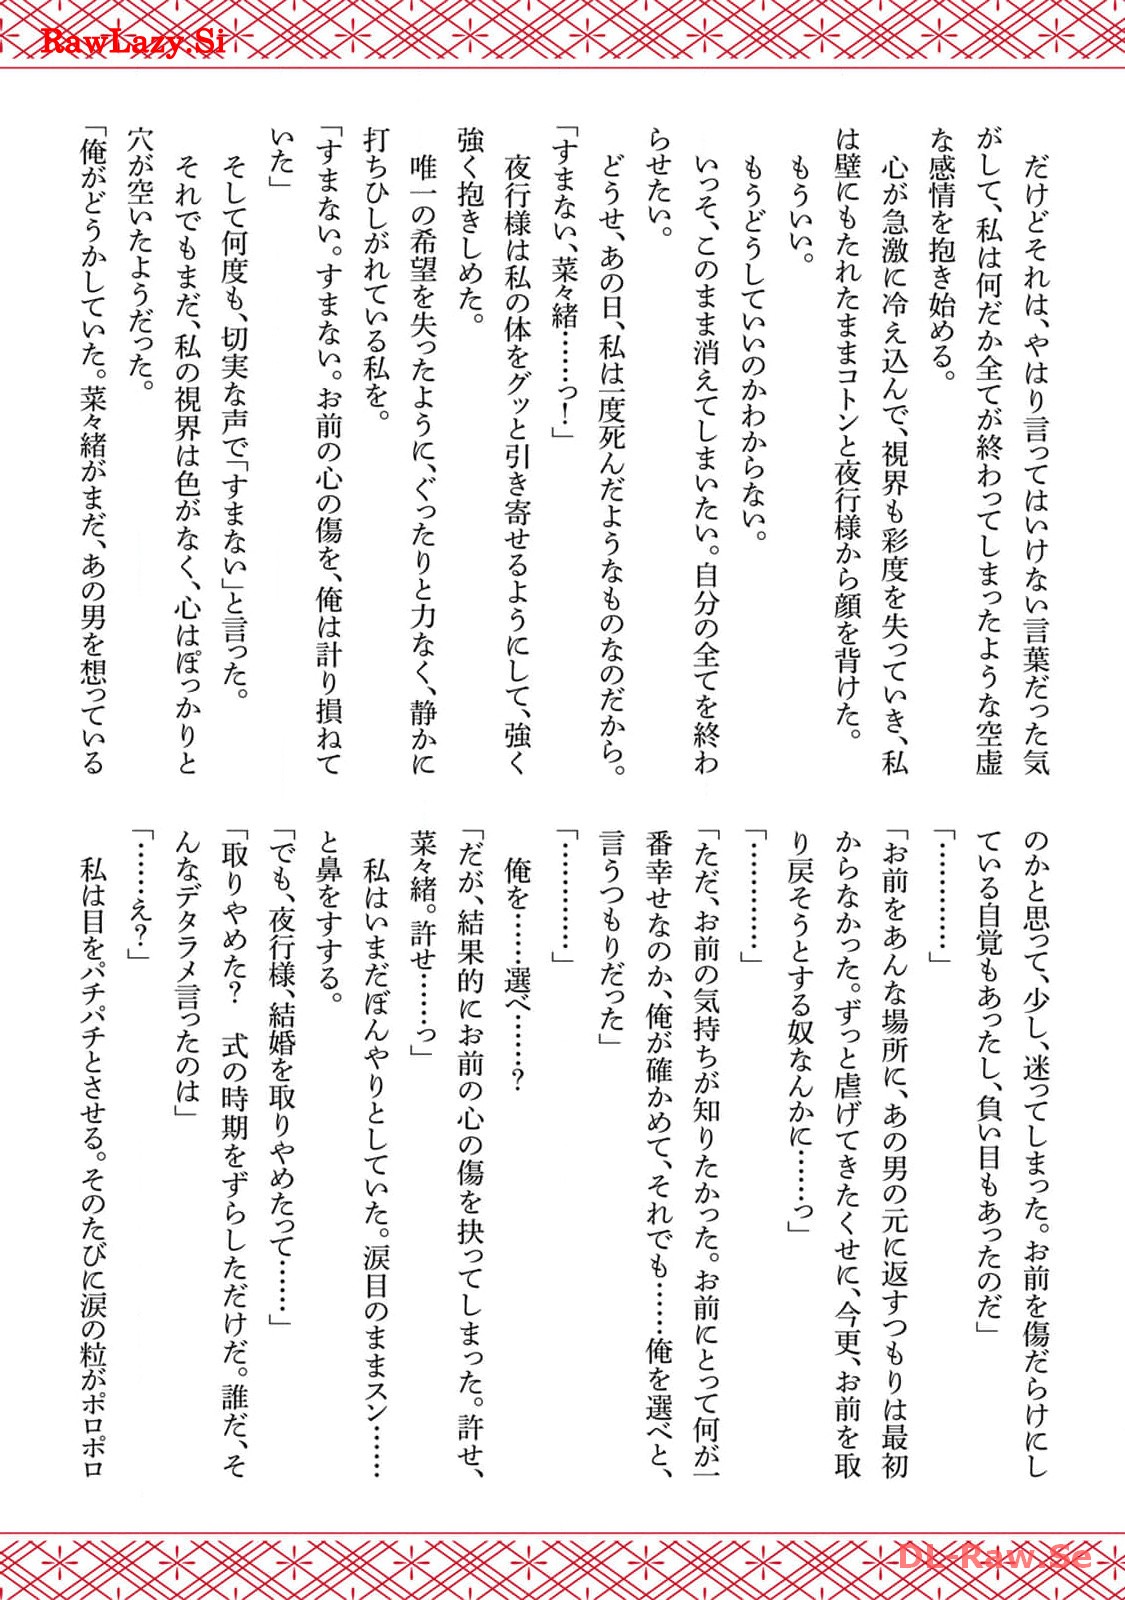 RawLazy.Si
だけどそれは、やはり言ってはいけない言葉だった気
がして、私は何だか全てが終わってしまったような空虚
な感情を抱き始める。
心が急激に冷え込んで、視界も彩度を失っていき、私
は壁にもたれたままコトンと夜行様から顔を背けた。
もういい。
もうどうしていいのかわからない。
いっそ、このまま消えてしまいたい。自分の全てを終わ
らせたい。
どうせ、あの日、私は一度死んだようなものなのだから。
「すまない、菜々緒……っ！」
夜行様は私の体をグッと引き寄せるようにして、強く
強く抱きしめた。
唯一の希望を失ったように、ぐったりと力なく、静かに
打ちひしがれている私を。
「すまない。すまない。お前の心の傷を、俺は計り損ねて
いた」
そして何度も、切実な声で「すまない」と言った。
それでもまだ、私の視界は色がなく、心はぽっかりと
穴が空いたようだった。
「俺がどうかしていた。菜々緒がまだ、あの男を想っている
のかと思って、少し、迷ってしまった。お前を傷だらけにし
ている自覚もあったし、負い目もあったのだ」
「…………」
「お前をあんな場所に、あの男の元に返すつもりは最初
からなかった。ずっと虐げてきたくせに、今更、お前を取
り戻そうとする奴なんかに……っ」
「…………」
「ただ、お前の気持ちが知りたかった。お前にとって何が一
番幸せなのか、俺が確かめて、それでも……俺を選べと、
言うつもりだった」
「…………」
俺を……選べ……？
「だが、結果的にお前の心の傷を抉ってしまった。許せ、
菜々緒。許せ……っ」
私はいまだぼんやりとしていた。涙目のままスン……
と鼻をすする。
「でも、夜行様、結婚を取りやめたって……」
「取りやめた？　式の時期をずらしただけだ。誰だ、そ
んなデタラメ言ったのは」
「……え？」
私は目をパチパチとさせる。そのたびに涙の粒がポロポロ
DL-Raw.Se